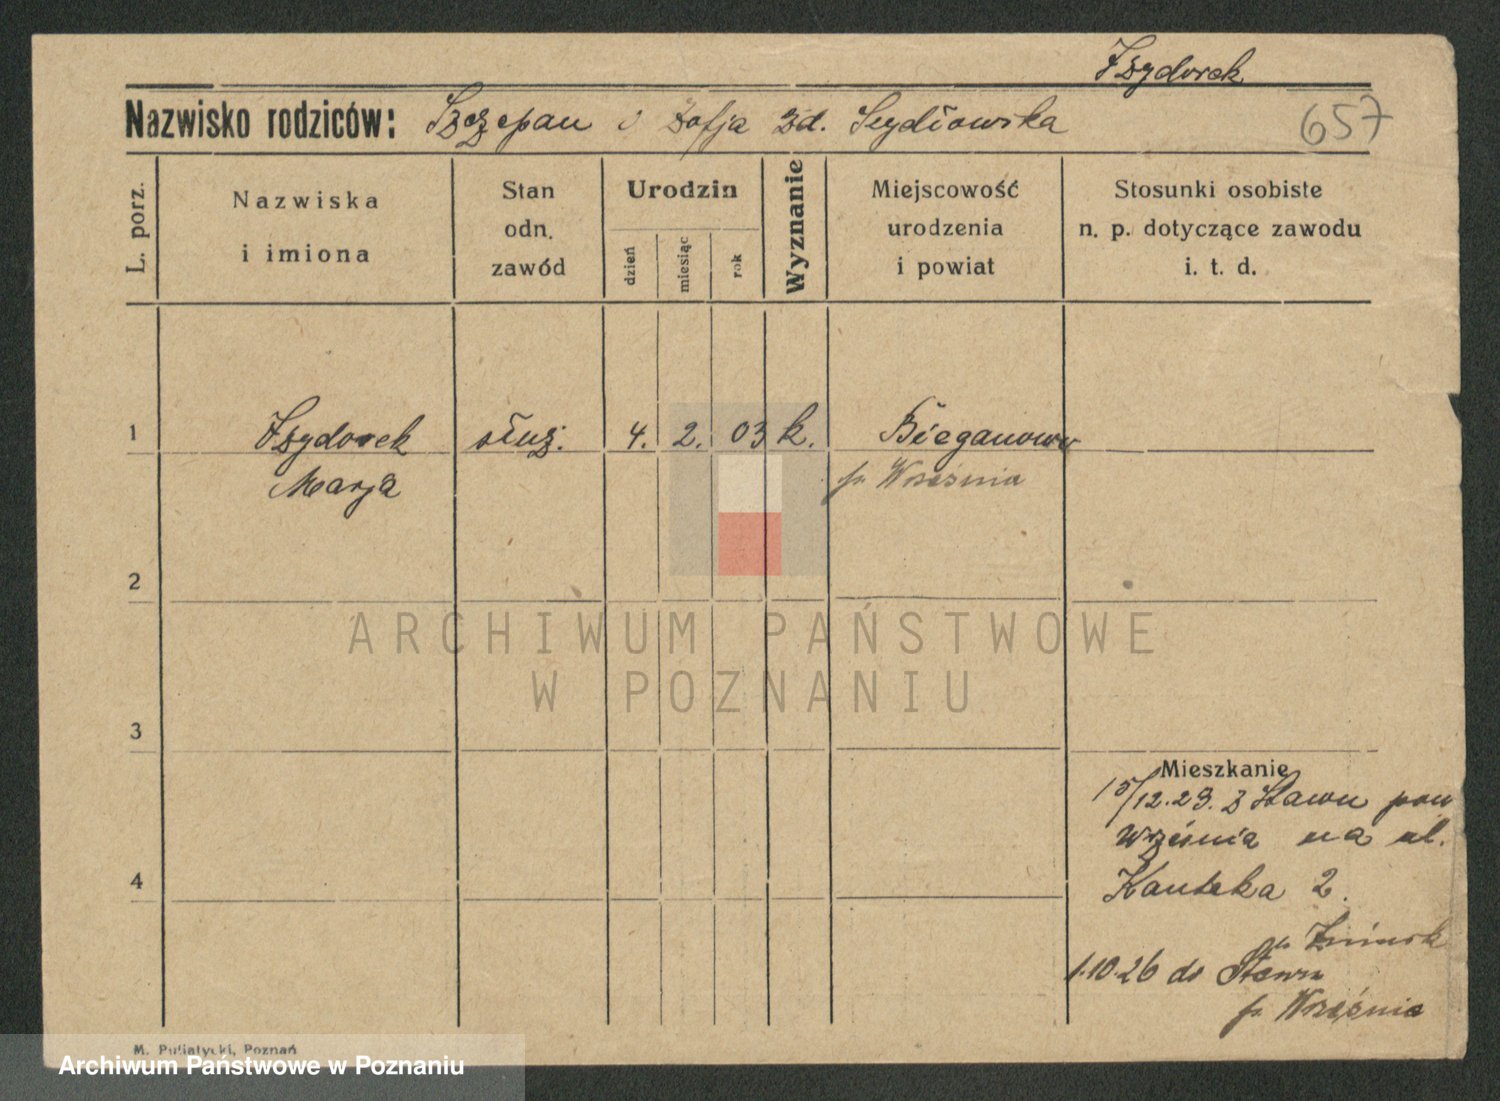 Izydorek
Nazwisko rodziców: Szczepan i Zofja zd. Seydlowska
657
L. porz.
Nazwiska
i imiona
Stan
odn.
zawód
Urodzin
dzień
miesiąc
rok
Wyznanie
Miejscowość
urodzenia
i powiat
Stosunki osobiste
n. p. dotyczące zawodu
i. t. d.
1 Izydorek służ. 4. 2. 03 k. Bieganowo
Marja p. Września
2
ARCHIWUM PAŃSTWOWE
W POZNANIU
3
Mieszkanie
15/12.23. z Stawu pow
Września na ul.
4
Kanteka 2.
1.10.26 do Stawu
p. Września
M. Putiatycki, Poznań
Archiwum Państwowe w Poznaniu